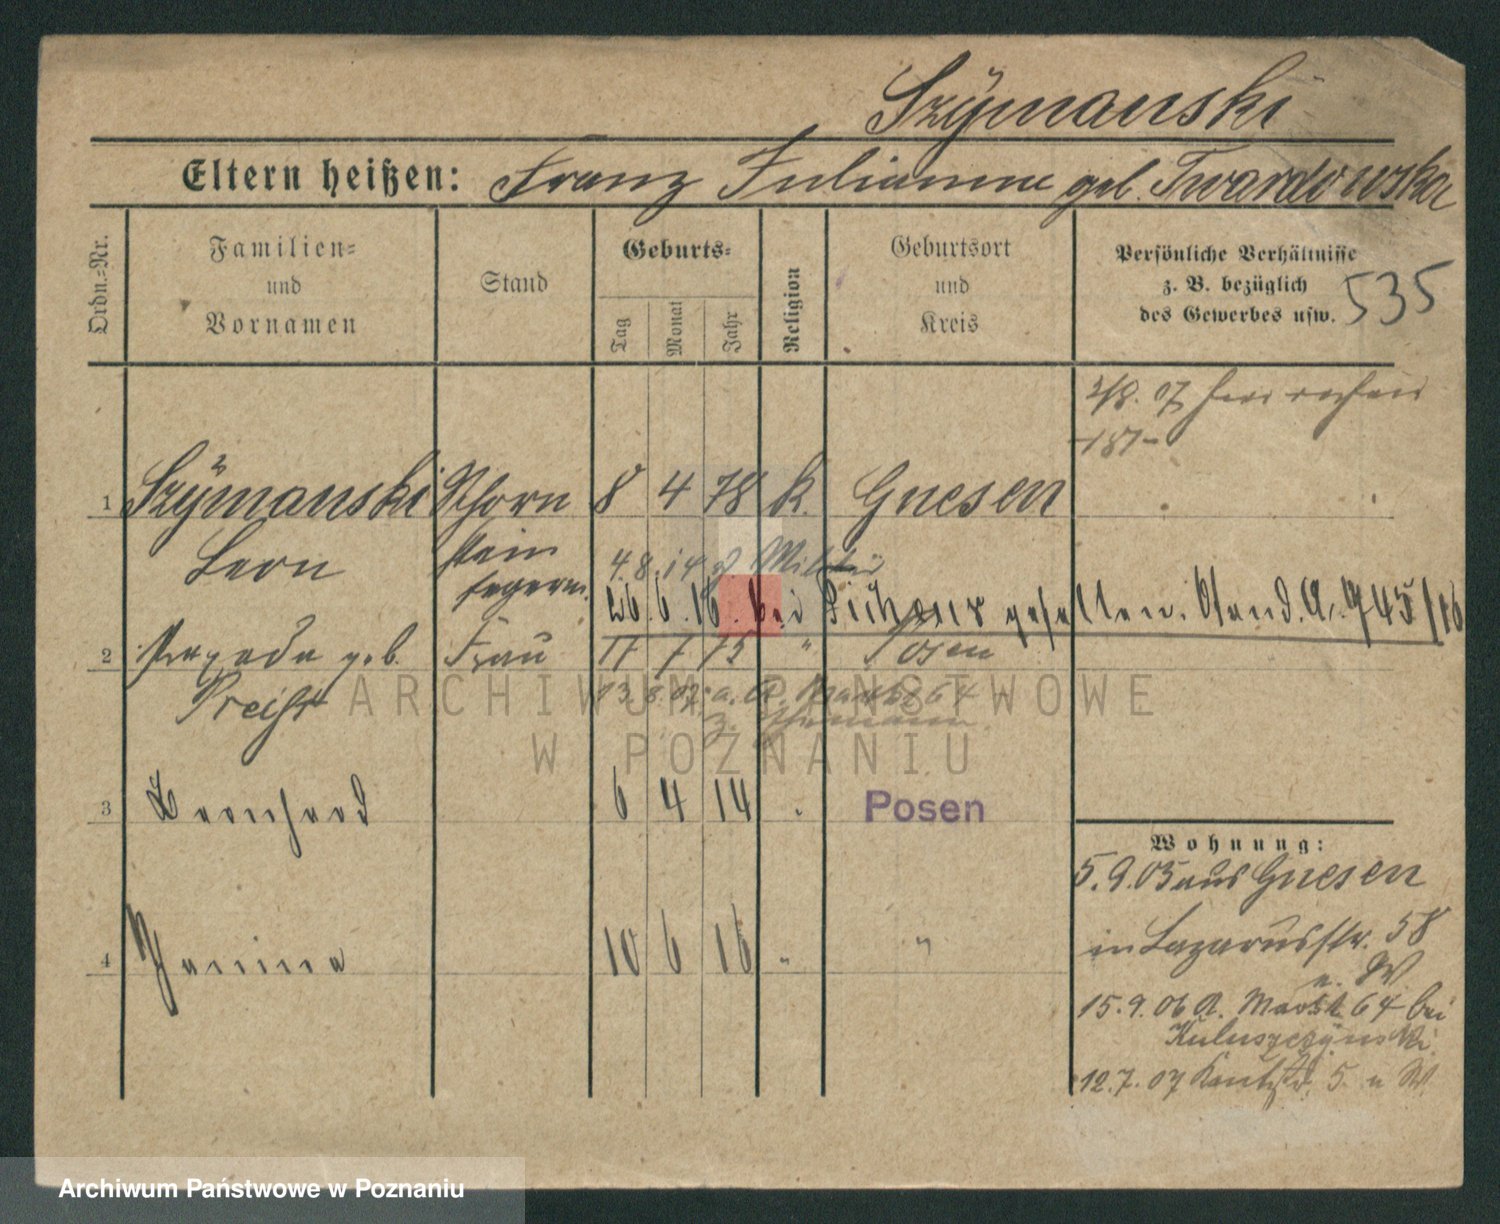 Szÿmanski
Eltern heißen: Franz Julianna geb. Twardowska
Ordn.-Nr.
Familien- und Vornamen
Stand
Geburts-
Tag
Monat
Jahr
Religion
Geburtsort und Kreis
Persönliche Verhältnisse z. B. bezüglich des Gewerbes usw.
535
2/8. 07
-187-
1 Szÿmanski Schorn 8 4 78 k. Gnesen
Leon stein
fegerm.
4.8.14 z Militär
26.6.16. bei gefallen. Stand. A. 745/16
2 geb. Frau 17 7 75 " Posen
13.8.07. a. 64
z. Ehemann
3 Leonhard 6 4 14 " Posen
4 Janina 10 6 16 " "
Wohnung:
5.9.05 aus Gnesen
in Lazarusstr. 58
u. W.
15.9.06 A. Markt 64 bei
Kuluszczÿnski
12.7.07 5. u W
ARCHIWUM PAŃSTWOWE
W POZNANIU
Archiwum Państwowe w Poznaniu